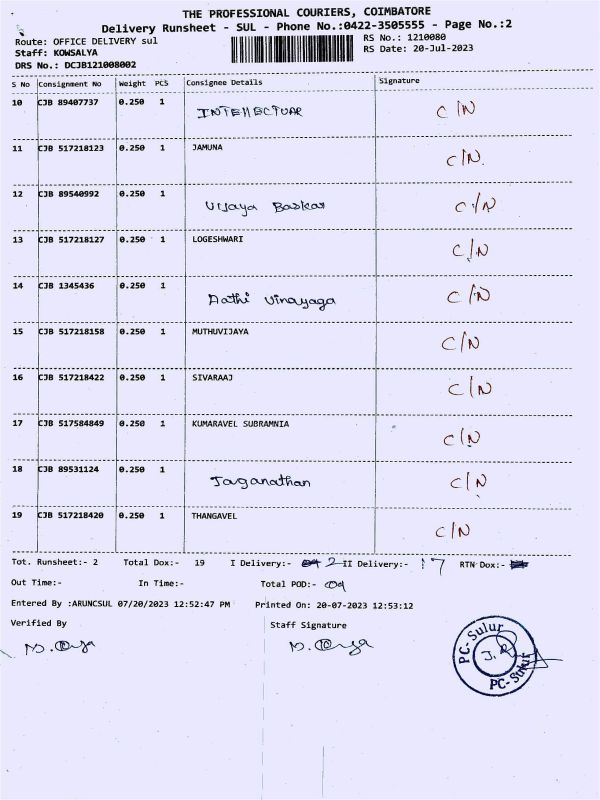 THE PROFESSIONAL COURIERS, COIMBATORE
Delivery Runsheet - SUL - Phone No.:0422-3505555 - Page No.:2
Route: OFFICE DELIVERY sul
RS No.: 1210080
Staff: KOWSALYA
RS Date: 20-Jul-2023
DRS No.: DCJB121008002
S No Consignment No Weight PCS Consignee Details Signature
10 CJB 89407737 0.250 1 INTELLECTUAR C/N
11 CJB 517218123 0.250 1 JAMUNA C/N.
12 CJB 89540992 0.250 1 Vijaya Baskar C/N
13 CJB 517218127 0.250 1 LOGESHWARI C/N
14 CJB 1345436 0.250 1 Aathi Vinayaga C/N
15 CJB 517218158 0.250 1 MUTHUVIJAYA C/N
16 CJB 517218422 0.250 1 SIVARAAJ C/N
17 CJB 517584849 0.250 1 KUMARAVEL SUBRAMNIA C/N
18 CJB 89531124 0.250 1 Jaganathan C/N
19 CJB 517218420 0.250 1 THANGAVEL C/N
Tot. Runsheet:- 2 Total Dox:- 19 I Delivery:- 2 II Delivery:- 17 RTN Dox:-
Out Time:- In Time:- Total POD:-
Entered By :ARUNCSUL 07/20/2023 12:52:47 PM Printed On: 20-07-2023 12:53:12
Verified By Staff Signature
PC-Sulur
PC-Sulur